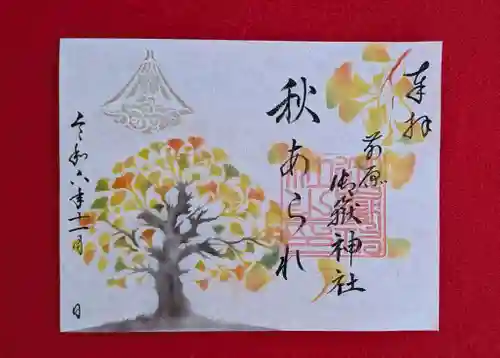 奉拝
前原
御嶽神社
秋あられ
令和六年十一月
日